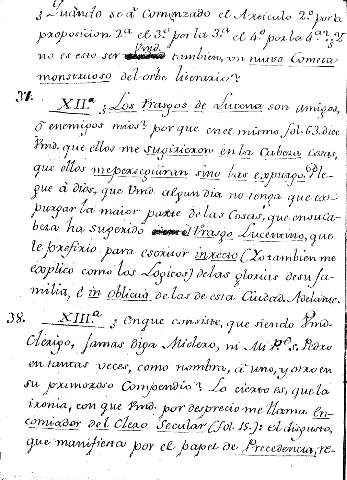 ¿Quándo se a Comenzado el Articulo 2.º por la
proposicion 2.ª el 3.º por la 3.ª el 4.º por la 4.ª? Y
no es esto ser Vmd. tambien, un nuevo Cometa
monstruoso del orbe literario?
37. XII.ª ¿Los Vrasgos de Lucena son amigos,
ó enemigos mios? porque en el mismo fol. 63. dice
Vmd. que ellos me sugirieron en la Cabeza cosas,
que ellos me perseguiran sino las expurgo. Ple-
gue á Dios, que Vmd. algun dia no tenga que ex-
purgar la maior parte de las Cosas, que en su Ca-
beza ha sugerido Vrasgo Lucentino, que
le prefixio para escriuir in recto (Yo tambien me
explico como los Logicos) de las glorias de su fa-
milia, é in obliquo de las de esta Ciudad. Adelante.
38. XIII.ª ¿En que consiste, que siendo Vmd.
Clerigo, jamas diga Mi clero, ni Mi P.e S. Pedro
en tantas veces, como nombra, á uno, y otro en
su primoroso Compendio? Lo cierto es, que la
ironia, con que Vmd. por desprecio me llama En-
comiador del Clero Secular (fol. 15.): el disgusto,
que manifiesta por el papel de Precedencia, re-